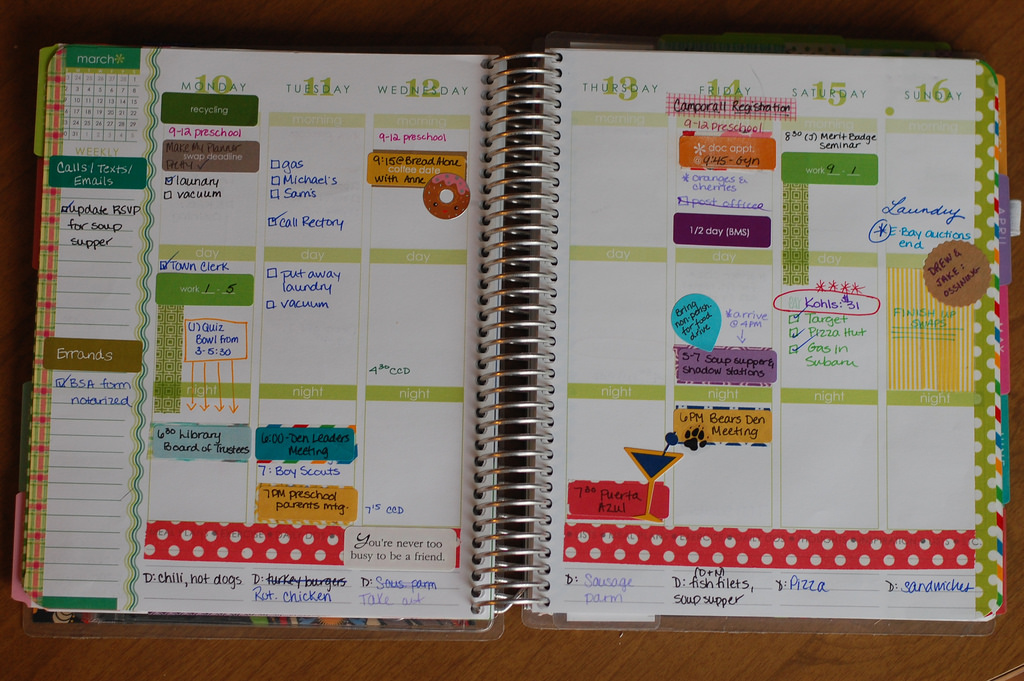 march*
WEEKLY
Calls / Texts/
Emails
update RSVP
for soup
supper
Errands
BSA form
notarized
10
MONDAY
recycling
9-12 preschool
Make My Planner
Pretty
swap deadline
laundry
vacuum
day
Town Clerk
work 1 - 5
(J) Quiz
Bowl from
3-5:30
night
6:30 Library
Board of Trustees
D: chili, hot dogs
11
TUESDAY
morning
gas
Michael's
Sam's
Call Rectory
day
put away
laundry
vacuum
night
6:00-Den Leaders
Meeting
7: Boy Scouts
7PM preschool
parents mtg.
D: turkey burgers
Rot. chicken
12
WEDNESDAY
morning
9-12 preschool
9:15 @ Bread Alone
coffee date
with Anne
day
4:30 CCD
night
7:15 CCD
You're never too
busy to be a friend.
D: Saus. parm
Take out
13
THURSDAY
morning
day
night
7:30 Puerta
Azul
D: Sausage
parm
14
FRIDAY
Camporall Registration
9-12 preschool
* doc appt.
@ 9:45-Gyn
* oranges &
cherries
post office
1/2 day (BMS)
day
Bring
non-perish.
for food
drive
* arrive
@ 4PM
5-7 Soup supper &
shadow stations
night
6PM Bears Den
Meeting
D: fish filets,
soup supper
15
SATURDAY
8:30 (J) Merit Badge
Seminar
work 9 - 1
day
Kohls: $31
Target
Pizza Hut
Gas in
Subaru
night
D: Pizza
16
SUNDAY
Laundry
* E-Bay auctions
end
day
DREW &
JAKE:
FINISH UP
SWAPS
night
D: sandwiches
APRIL